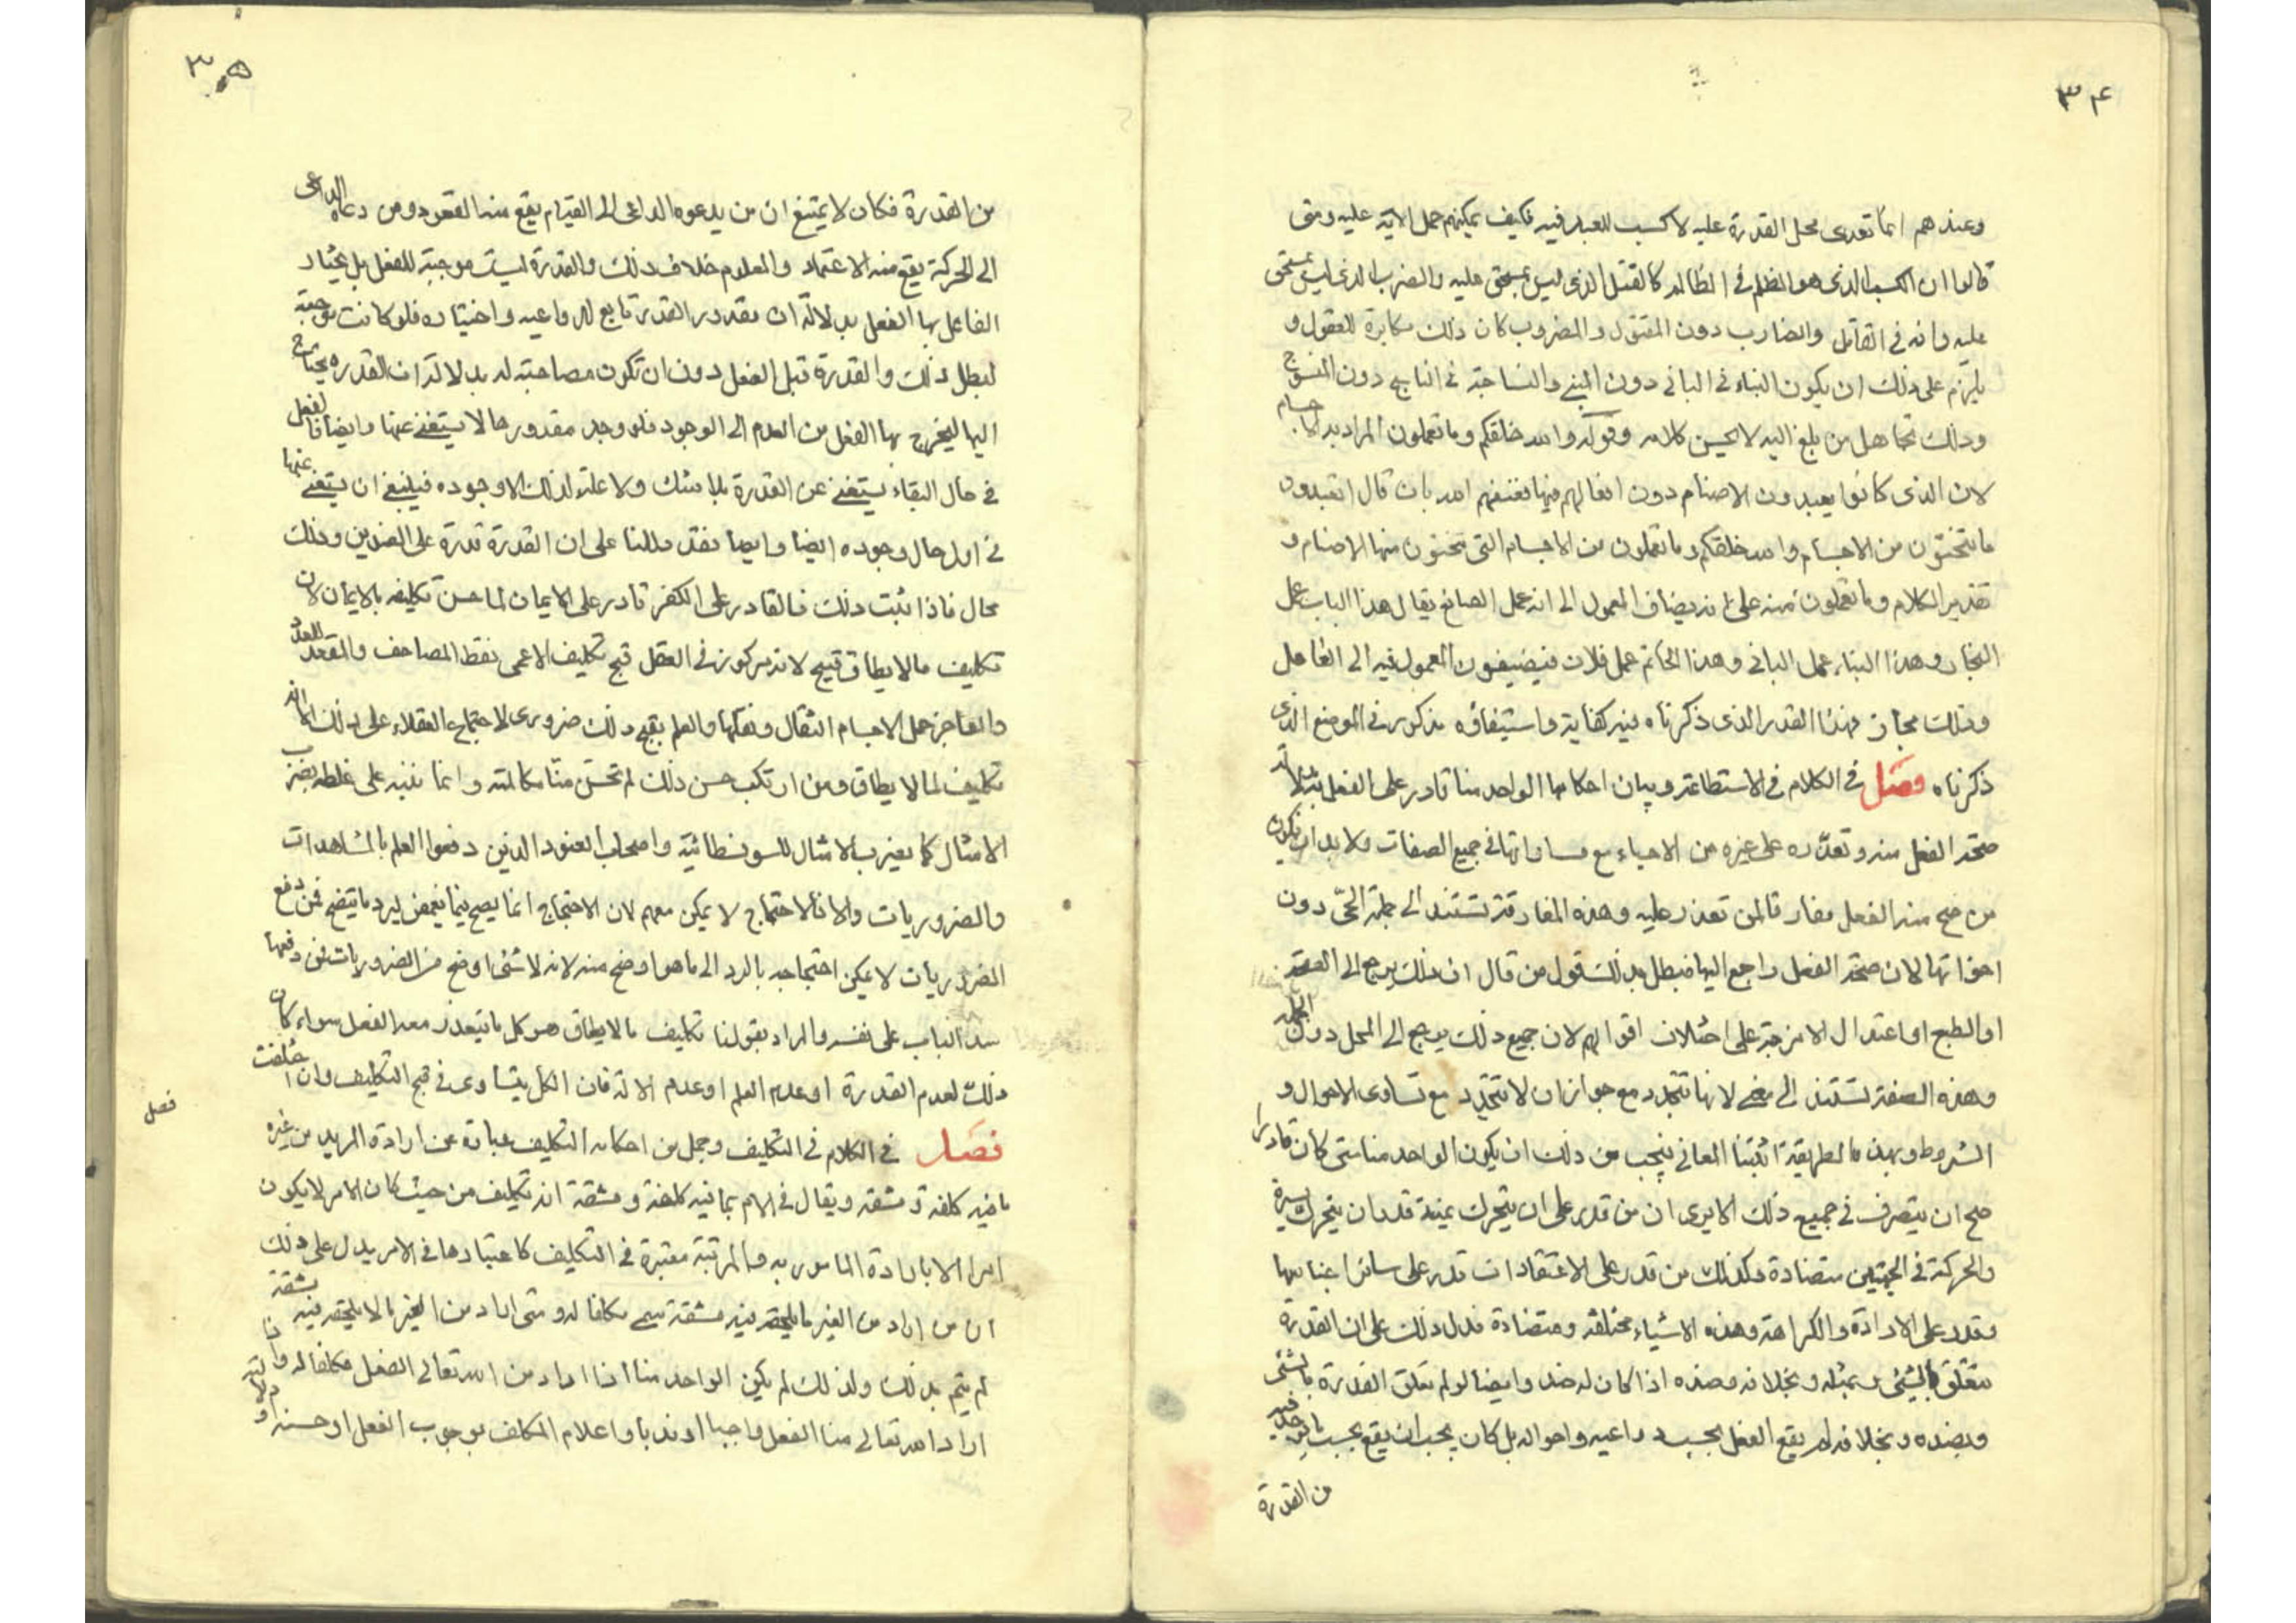 ٣۴
وعندهم انما تعدى محل القدرة عليه لا كسب للعبد فيه فكيف يمكنهم حمل الآية عليه ومتى
قالوا ان الكسب الذى هو الظلم في الظالم كالقتل الذى ليس بمستحق عليه والضرب الذى ليس بمستحق
عليه وانه في القاتل والضارب دون المقتول والمضروب كان ذلك مكابرة للعقول و
يلزم على ذلك ان يكون البناء في البانى دون المبنى والنساجة في الناسج دون المنسوج
وذلك تجاهل من بلغ اليه لا يحسن كلامه وقوله والله خلقكم وما تعملون المراد به الاجسام
لان الذى كانوا يعبدون الاصنام دون افعالهم فيها فعنفهم الله بان قال اتعبدون
ما تنحتون من الاجسام والله خلقكم وما تعملون من الاجسام التى تنحتون منها الاصنام و
تقدير الكلام وما تعملون فيه على انه يضاف المعمول الى انه عمل الصانع يقال هذا الباب عمل
النجار وهذا البناء عمل البانى وهذا الخاتم عمل فلان فيضيفون المعمول فيه الى الفاعل
وذلك مجاز فهذا القدر الذى ذكرناه فيه كفاية واستيفاؤه مذكور في الموضع الذى
ذكرناه فصل في الكلام في الاستطاعة وبيان احكامها الواحد منا قادر على الفعل بدلالة
صحة الفعل منه وتعذره على غيره من الاحياء مع مساواتها في جميع الصفات ولا بد ان يكون
من صح منه الفعل مفارقا لمن تعذر عليه وهذه المفارقة تستند الى جملة الحىّ دون
اجزائها لان صحة الفعل راجع اليها فبطل بذلك قول من قال ان ذلك يرجع الى الصحة
او الطبع او اعتدال الامزجة على اختلاف اقوالهم لان جميع ذلك يرجع الى المحل دون الجملة
وهذه الصفة تستند الى معنى لانها تتجدد مع جواز ان لا تتجدد مع تساوى الاحوال و
الشروط وبهذه الطريقة اثبتنا المعانى فيجب من ذلك ان يكون الواحد منا متى كان قادرا
صح ان يتصرف في جميع ذلك الا يرى ان من قدر على ان يتحرك يمنة قدر ان يتحرك يسرة
والحركة في الجهتين متضادة وكذلك من قدر على الاعتقادات قدر على سائر اجناسها
وقدر على الارادة والكراهة وهذه الاشياء مختلفة ومتضادة فدل ذلك على ان القدرة
تتعلق بالشئ وبمثله وبخلافه وضده اذا كان له ضد وايضا لو لم تتعلق القدرة بالشئ
وبضده وبخلافه لم يقع الفعل بحسب دواعيه واحواله بل كان يجب ان يقع بحسب ما يوجد فيه
من القدرة
٣۵
من القدرة فكان لا يمتنع ان من يدعوه الداعى الى القيام يقع منه القعود ومن دعاه الداعى
الى الحركة يقع منه الاعتماد والمعلوم خلاف ذلك والقدرة ليست موجبة للفعل بل يختار
الفاعل بها الفعل بدلالة ان مقدور القدر تابع لدواعيه واختياره فلو كانت موجبة
لبطل ذلك والقدرة قبل الفعل دون ان تكون مصاحبة له بدلالة ان القدرة يحتاج
اليها ليخرج بها الفعل من العدم الى الوجود فلو وجد مقدورها لاستغنى عنها وايضا فالفعل
في حال البقاء يستغنى عن القدرة بلا شك ولا علة لذلك الا وجوده فينبغى ان يستغنى عنها
في اول حال وجوده ايضا وايضا فقد دللنا على ان القدرة قدرة على الضدين وذلك
محال فاذا ثبت ذلك فالقادر على الكفر قادر على الايمان لما حسن تكليفه بالايمان لان
تكليف ما لا يطاق قبيح لانه مركوز في العقل قبح تكليف الاعمى نقط المصاحف والمقعد العدو
والعاجز حمل الاجسام الثقال ونقلها والعلم بقبح ذلك ضرورى لاجتماع العقلاء على ذلك
تكليف لما لا يطاق ومن ارتكب حسن ذلك لم تحسن منّا مكالمته وانما ننبه على غلطه بضرب
الامثال كما يضرب الامثال للسوفسطائية واصحاب العنود الذين دفعوا العلم بالمشاهدات
والضروريات والا فالاحتجاج لا يمكن معهم لان الاحتجاج انما يصح فيما يغمض ليرد ما يتضح فمن دفع
الضروريات لا يمكن احتجاجه بالرد الى ما هو اوضح منه لانه لا شئ اوضح من الضروريات فمن دفعها
سد الباب على نفسه والمراد بقولنا تكليف ما لا يطاق هو كل ما يتعذر معه الفعل سواء كان
ذلك لعدم القدرة او عدم العلم او عدم الآلة فان الكل يتساوى في قبح التكليف وان اختلفت
فصل
فصل في الكلام في التكليف وجمل من احكامه التكليف عبارة عن ارادة المريد من غيره
ما فيه كلفة ومشقة ويقال في الامر بما فيه كلفة ومشقة انه تكليف من حيث كان الامر لا يكون
امرا الا بارادة المامور به والمرتبة معتبرة في التكليف كاعتبارها في الامر يدل على ذلك
ان من اراد من الغير ما يلحقه فيه مشقة سمى مكلفا له ومتى اراد من الغير ما لا يلحقه فيه مشقة
لم يتم بذلك ولذلك لم يكن الواحد منا اذا اراد من الله تعالى الفعل مكلفا له واذا
اراد الله تعالى منا الفعل واجبا او ندبا واعلام المكلف بوجوب الفعل او حسنه و